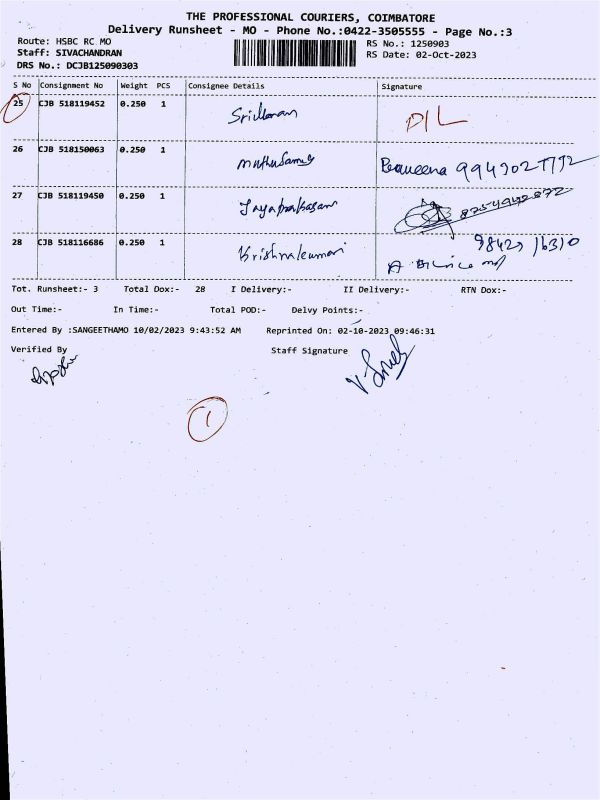 THE PROFESSIONAL COURIERS, COIMBATORE
Delivery Runsheet - MO - Phone No.:0422-3505555 - Page No.:3
Route: HSBC RC MO RS No.: 1250903
Staff: SIVACHANDRAN RS Date: 02-Oct-2023
DRS No.: DCJB125090303
S No Consignment No Weight PCS Consignee Details Signature
25 CJB 518119452 0.250 1 D/L
26 CJB 518150063 0.250 1 Muthusamy
27 CJB 518119450 0.250 1 Jayaprakasam
28 CJB 518116686 0.250 1 Krishnakumari
Tot. Runsheet:- 3 Total Dox:- 28 I Delivery:- II Delivery:- RTN Dox:-
Out Time:- In Time:- Total POD:- Delvy Points:-
Entered By :SANGEETHAMO 10/02/2023 9:43:52 AM Reprinted On: 02-10-2023 09:46:31
Verified By Staff Signature
1